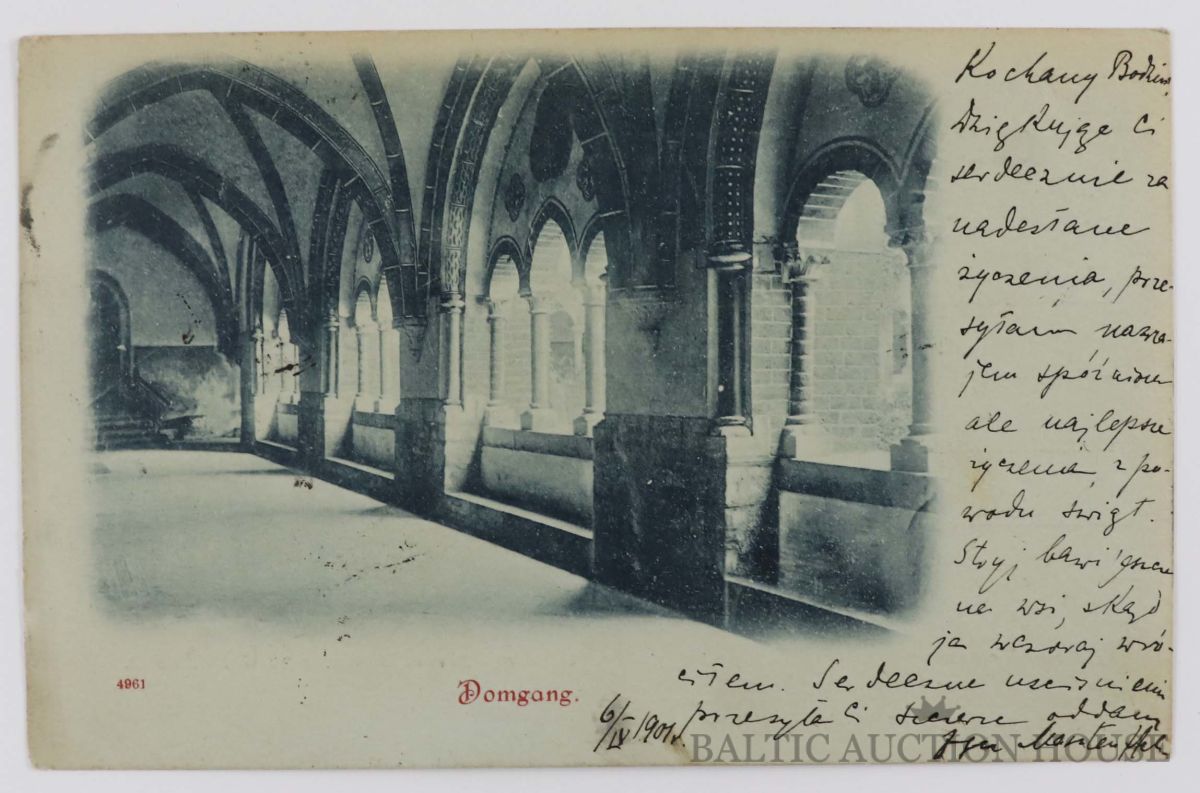 Kochany
Dziękuję Ci
serdecznie za
nadesłane
życzenia, prze-
syłam nawza-
jem spóźnione
ale najlepsze
życzenia z po-
wodu świąt.
bawi jeszcze
na wsi, skąd
ja wczoraj wró-
ciłem. Serdeczne uściśnienia
przesyła Ci szczerze oddany
6/IV 1901.
4961
Domgang.
BALTIC AUCTION HOUSE